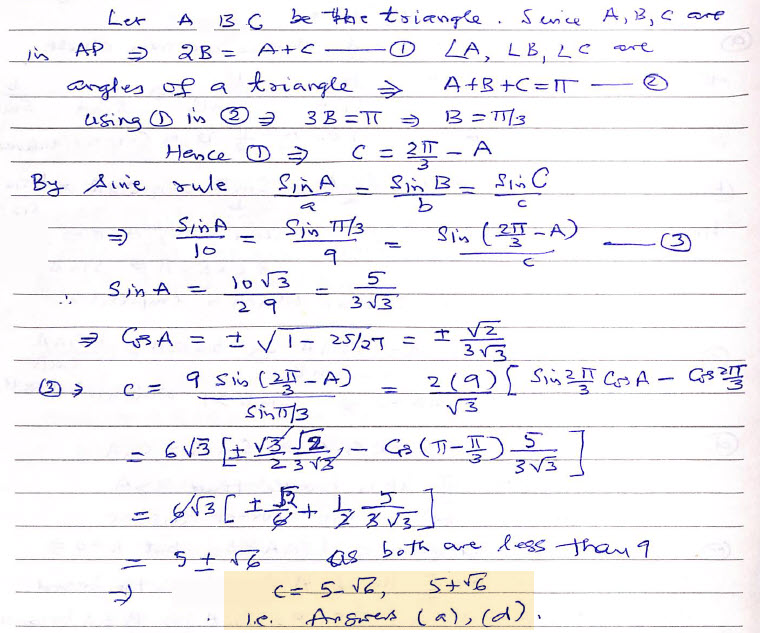 Let A B C be the triangle. Since A, B, C are
in AP ⇒ 2B = A+C —— ① ∠A, ∠B, ∠C are
angles of a triangle ⇒ A+B+C=π —— ②
using ① in ② ⇒ 3B=π ⇒ B=π/3
Hence ① ⇒ C = 2π/3 - A
By Sine rule SinA/a = Sin B/b = Sin C/c
⇒ SinA/10 = Sin π/3/9 = Sin (2π/3 - A)/c —— ③
∴ Sin A = 10√3/2 9 = 5/3√3
⇒ Cos A = ± √1 - 25/27 = ± √2/3√3
③ ⇒ c = 9 Sin (2π/3 - A)/Sin π/3 = 2(9)/√3 [ Sin 2π/3 Cos A - Cos 2π/3
= 6√3 [ ± √3/2 √2/3√3 - Cos (π - π/3) 5/3√3 ]
= 6√3 [ ± √2/6 + 1/2 5/3√3 ]
= 5 ± √6 as both are less than 9
⇒ c = 5-√6, 5+√6
i.e. Answers (a), (d).